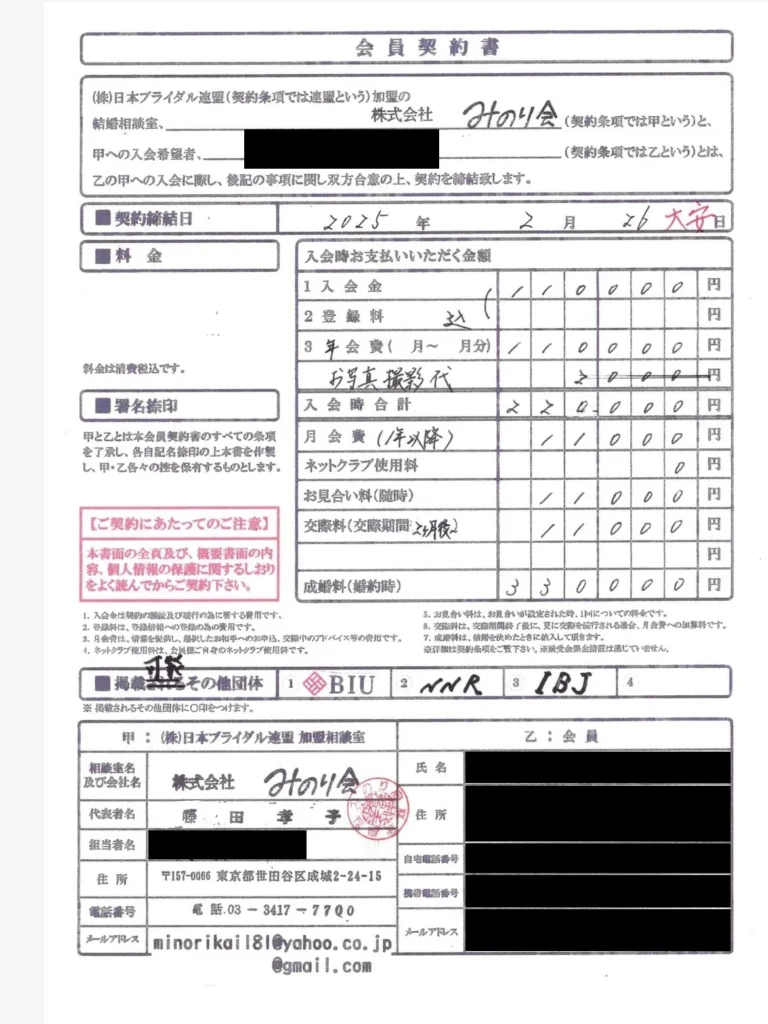 会員契約書
(株)日本ブライダル連盟(契約条項では連盟という)加盟の
結婚相談室、株式会社 みのり会(契約条項では甲という)と、
甲への入会希望者、(契約条項では乙という)とは、
乙の甲への入会に際し、後記の事項に関し双方合意の上、契約を締結致します。
■契約締結日 2025年 2月 26 大安日
■料 金
料金は消費税込です。
入会時お支払いいただく金額
1 入会金 110000円
2 登録料 込 円
3 年会費( 月~ 月分) 110000円
お写真撮影代 2000円
入会時合計 220,000円
月会費(1年以降) 11000円
ネットクラブ使用料 0円
お見合い料(随時) 11000円
交際料(交際期間 2ヶ月後) 11000円
円
成婚料(婚約時) 330000円
■署名捺印
甲と乙とは本会員契約書のすべての条項
を了承し、各自記名捺印の上本書を作製
し、甲・乙各々の控を保有するものとします。
【ご契約にあたってのご注意】
本書面の全頁及び、概要書面の内
容、個人情報の保護に関するしおり
をよく読んでからご契約下さい。
1. 入会金は契約の締結及び履行の為に要する費用です。
2. 登録料は、登録情報への登録の為の費用です。
3. 月会費は、情報を提供し、選択したお相手へのお申込、交際中のアドバイス等の費用です。
4. ネットクラブ使用料は、会員様ご自身のネットクラブ使用料です。
5. お見合い料は、お見合いが設定された時、1回についての料金です。
6. 交際料は、交際期間終了後に、更に交際を続行される場合、月会費への加算料です。
7. 成婚料は、結婚を決めたときに納入して頂きます。
※詳細は契約条項をご覧下さい。※前受金保全措置は講じていません。
■掲載されるその他団体 1 BIU 2 NNR 3 IBJ 4
※ 掲載されるその他団体に○印をつけます。
甲:(株)日本ブライダル連盟 加盟相談室
相談室名
及び会社名 株式会社 みのり会
代表者名 藤田 孝子
担当者名
住所 〒157-0066 東京都世田谷区成城2-24-15
電話番号 電話.03-3417-7700
メールアドレス minorikai181@yahoo.co.jp
@gmail.com
乙:会員
氏名
住所
自宅電話番号
携帯電話番号
メールアドレス